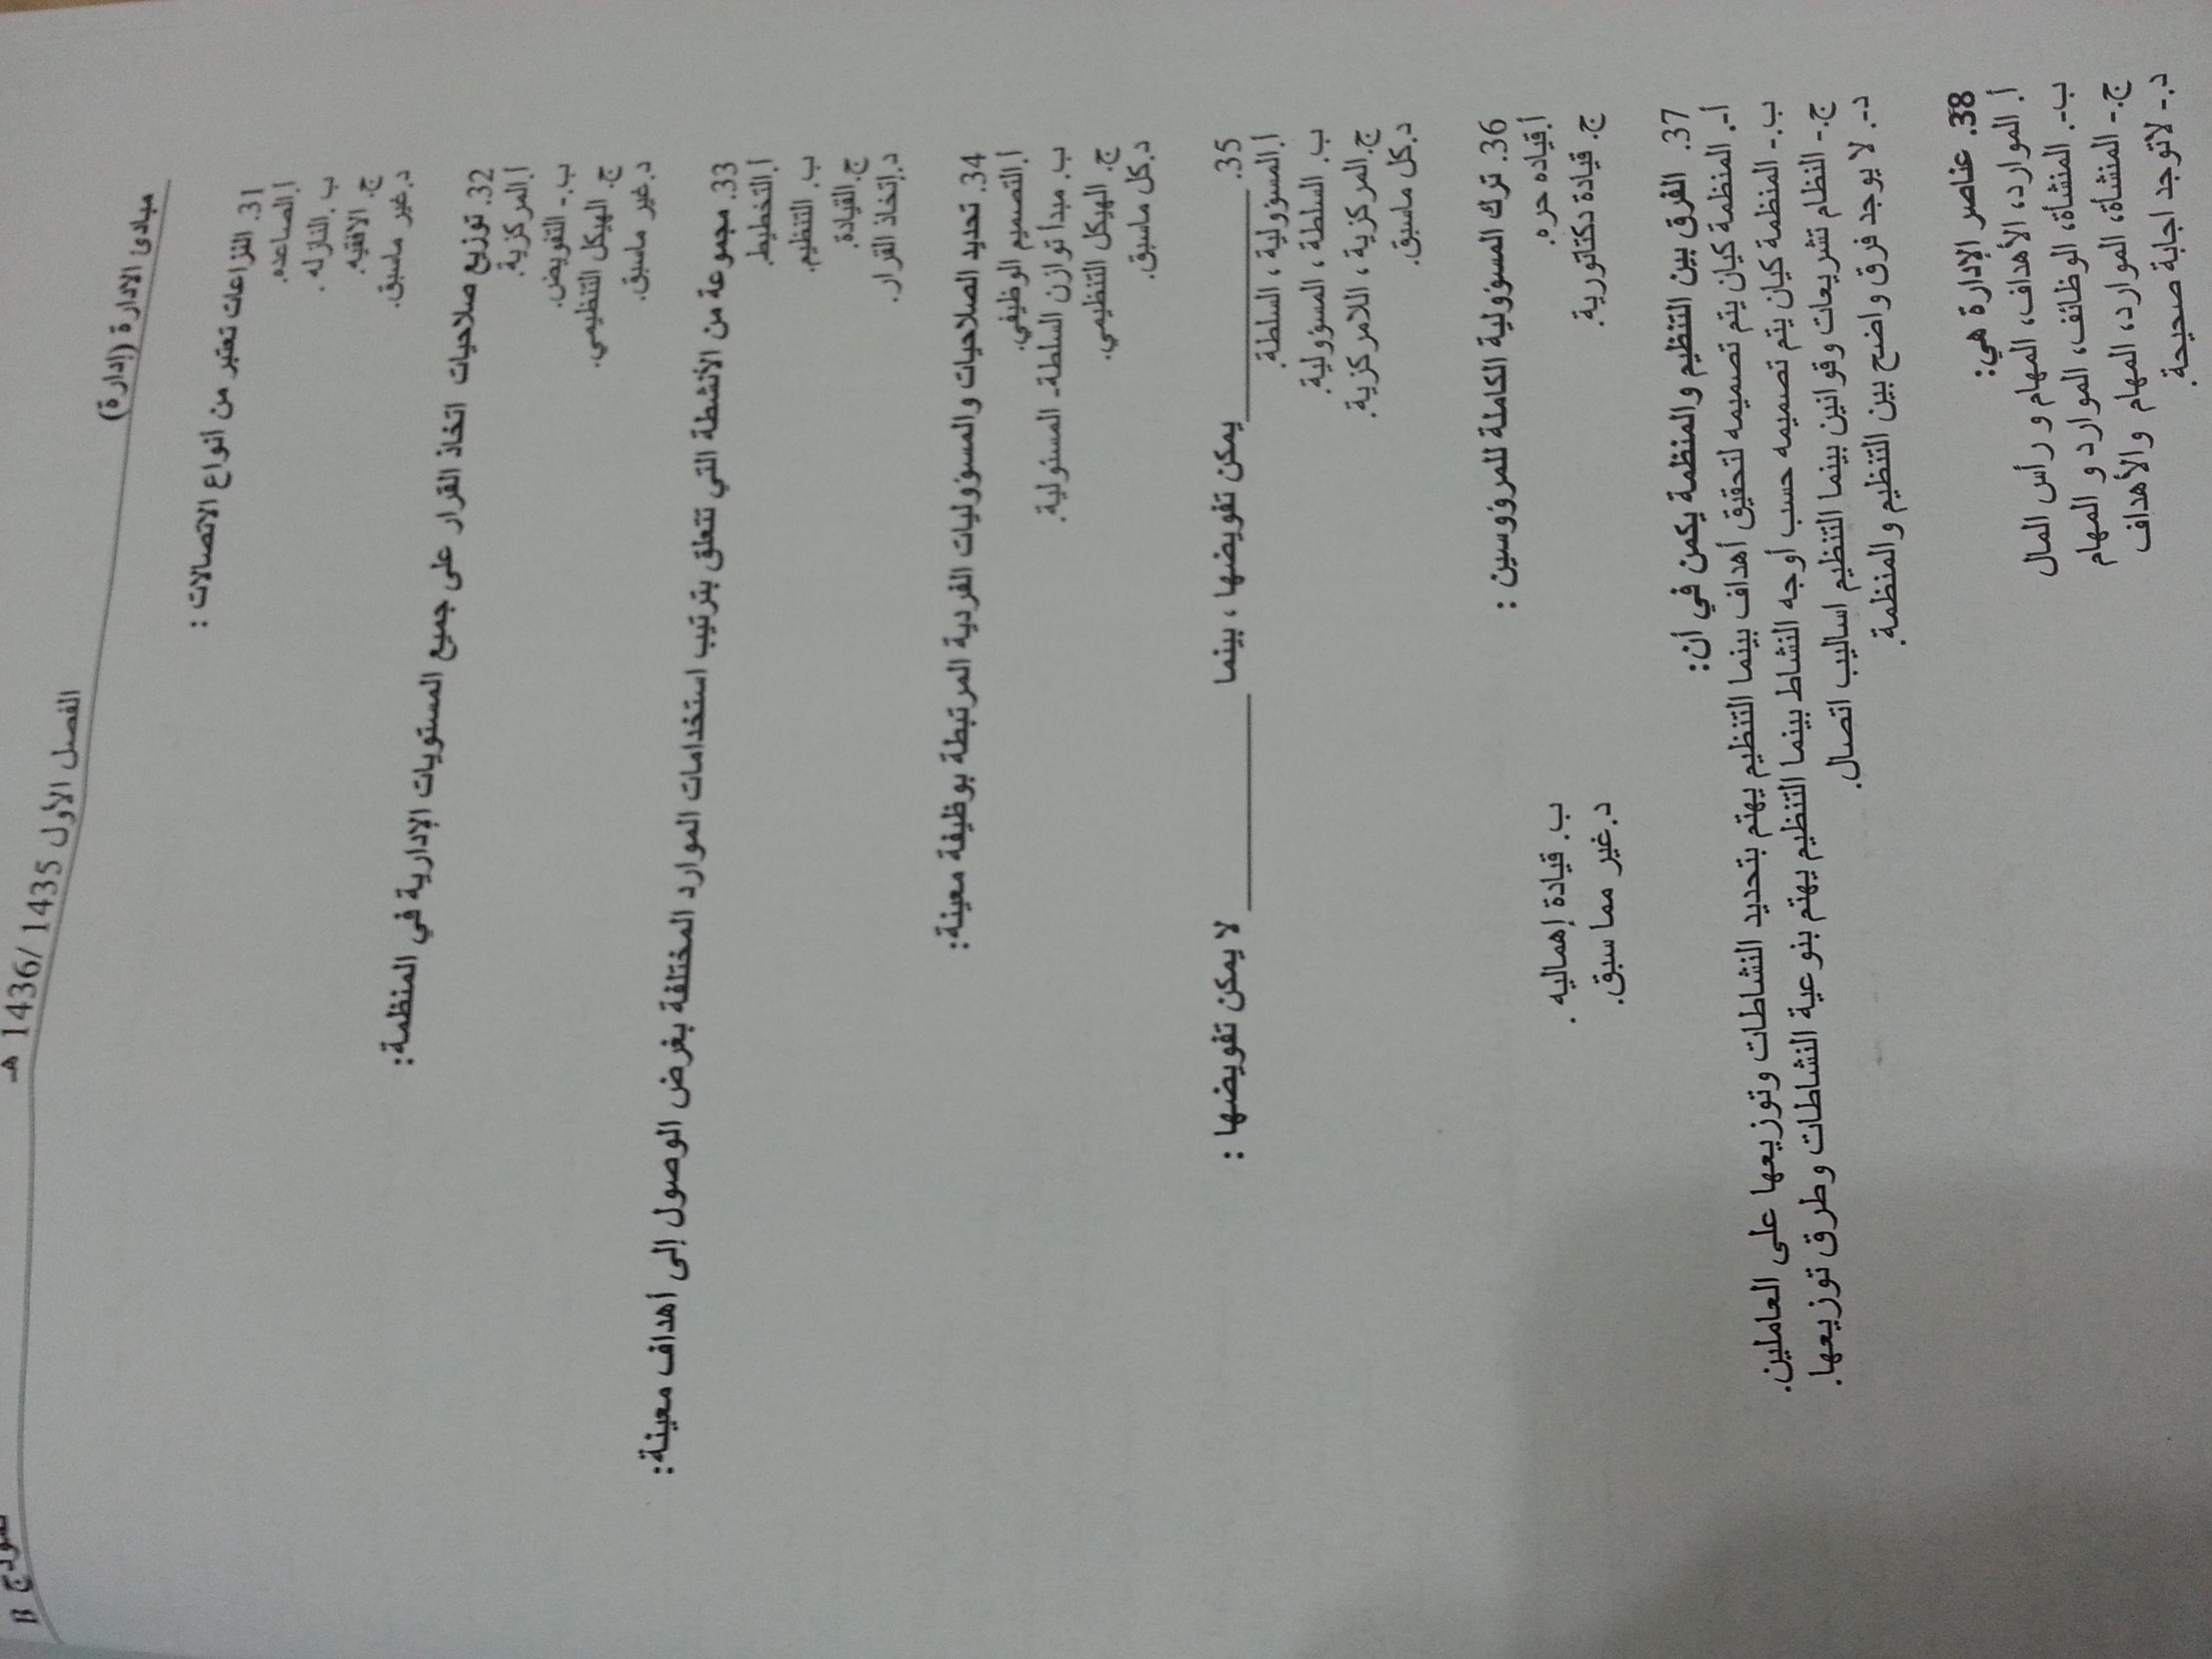 نموذج B
الفصل الأول 1435 /1436 هـ
مبادئ الإدارة (إدارة)
31. النزاعات تعتبر من أنواع الاتصالات :
أ.الصاعده.
ب .النازله .
ج. الافقيه.
د.غير ماسبق.
32. توزيع صلاحيات اتخاذ القرار على جميع المستويات الإدارية في المنظمة:
أ.المركزية.
ب.- التفويض.
ج. الهيكل التنظيمي.
د.غير ماسبق.
33. مجموعة من الأنشطة التي تتعلق بترتيب استخدامات الموارد المختلفة بغرض الوصول إلى أهداف معينة:
أ.التخطيط.
ب. التنظيم.
ج.القيادة.
د.إتخاذ القرار.
34. تحديد الصلاحيات والمسؤوليات الفردية المرتبطة بوظيفة معينة:
أ.التصميم الوظيفي.
ب. مبدأ توازن السلطة- المسئولية.
ج. الهيكل التنظيمي.
د.كل ماسبق.
35. ____________ يمكن تفويضها ، بينما ____________ لا يمكن تفويضها :
أ.المسؤولية ، السلطة.
ب. السلطة ، المسؤولية.
ج.المركزية ، اللامركزية.
د.كل ماسبق.
36. ترك المسؤولية الكاملة للمرؤوسين :
أ.قياده حره. ب. قيادة إهماليه .
ج. قيادة دكتاتورية. د.غير مما سبق.
37. الفرق بين التنظيم والمنظمة يكمن في أن:
أ-. المنظمة كيان يتم تصميمه لتحقيق أهداف بينما التنظيم يهتم بتحديد النشاطات وتوزيعها على العاملين.
ب.- المنظمة كيان يتم تصميمه حسب أوجه النشاط بينما التنظيم يهتم بنوعية النشاطات وطرق توزيعها.
ج.- النظام تشريعات وقوانين بينما التنظيم اساليب اتصال.
د-. لا يوجد فرق واضح بين التنظيم والمنظمة.
38. عناصر الإدارة هي:
أ. الموارد، الأهداف، المهام و رأس المال
ب-. المنشاة، الوظائف، الموارد و المهام
ج.- المنشاة، الموارد، المهام والأهداف
د.- لاتوجد اجابة صحيحة.